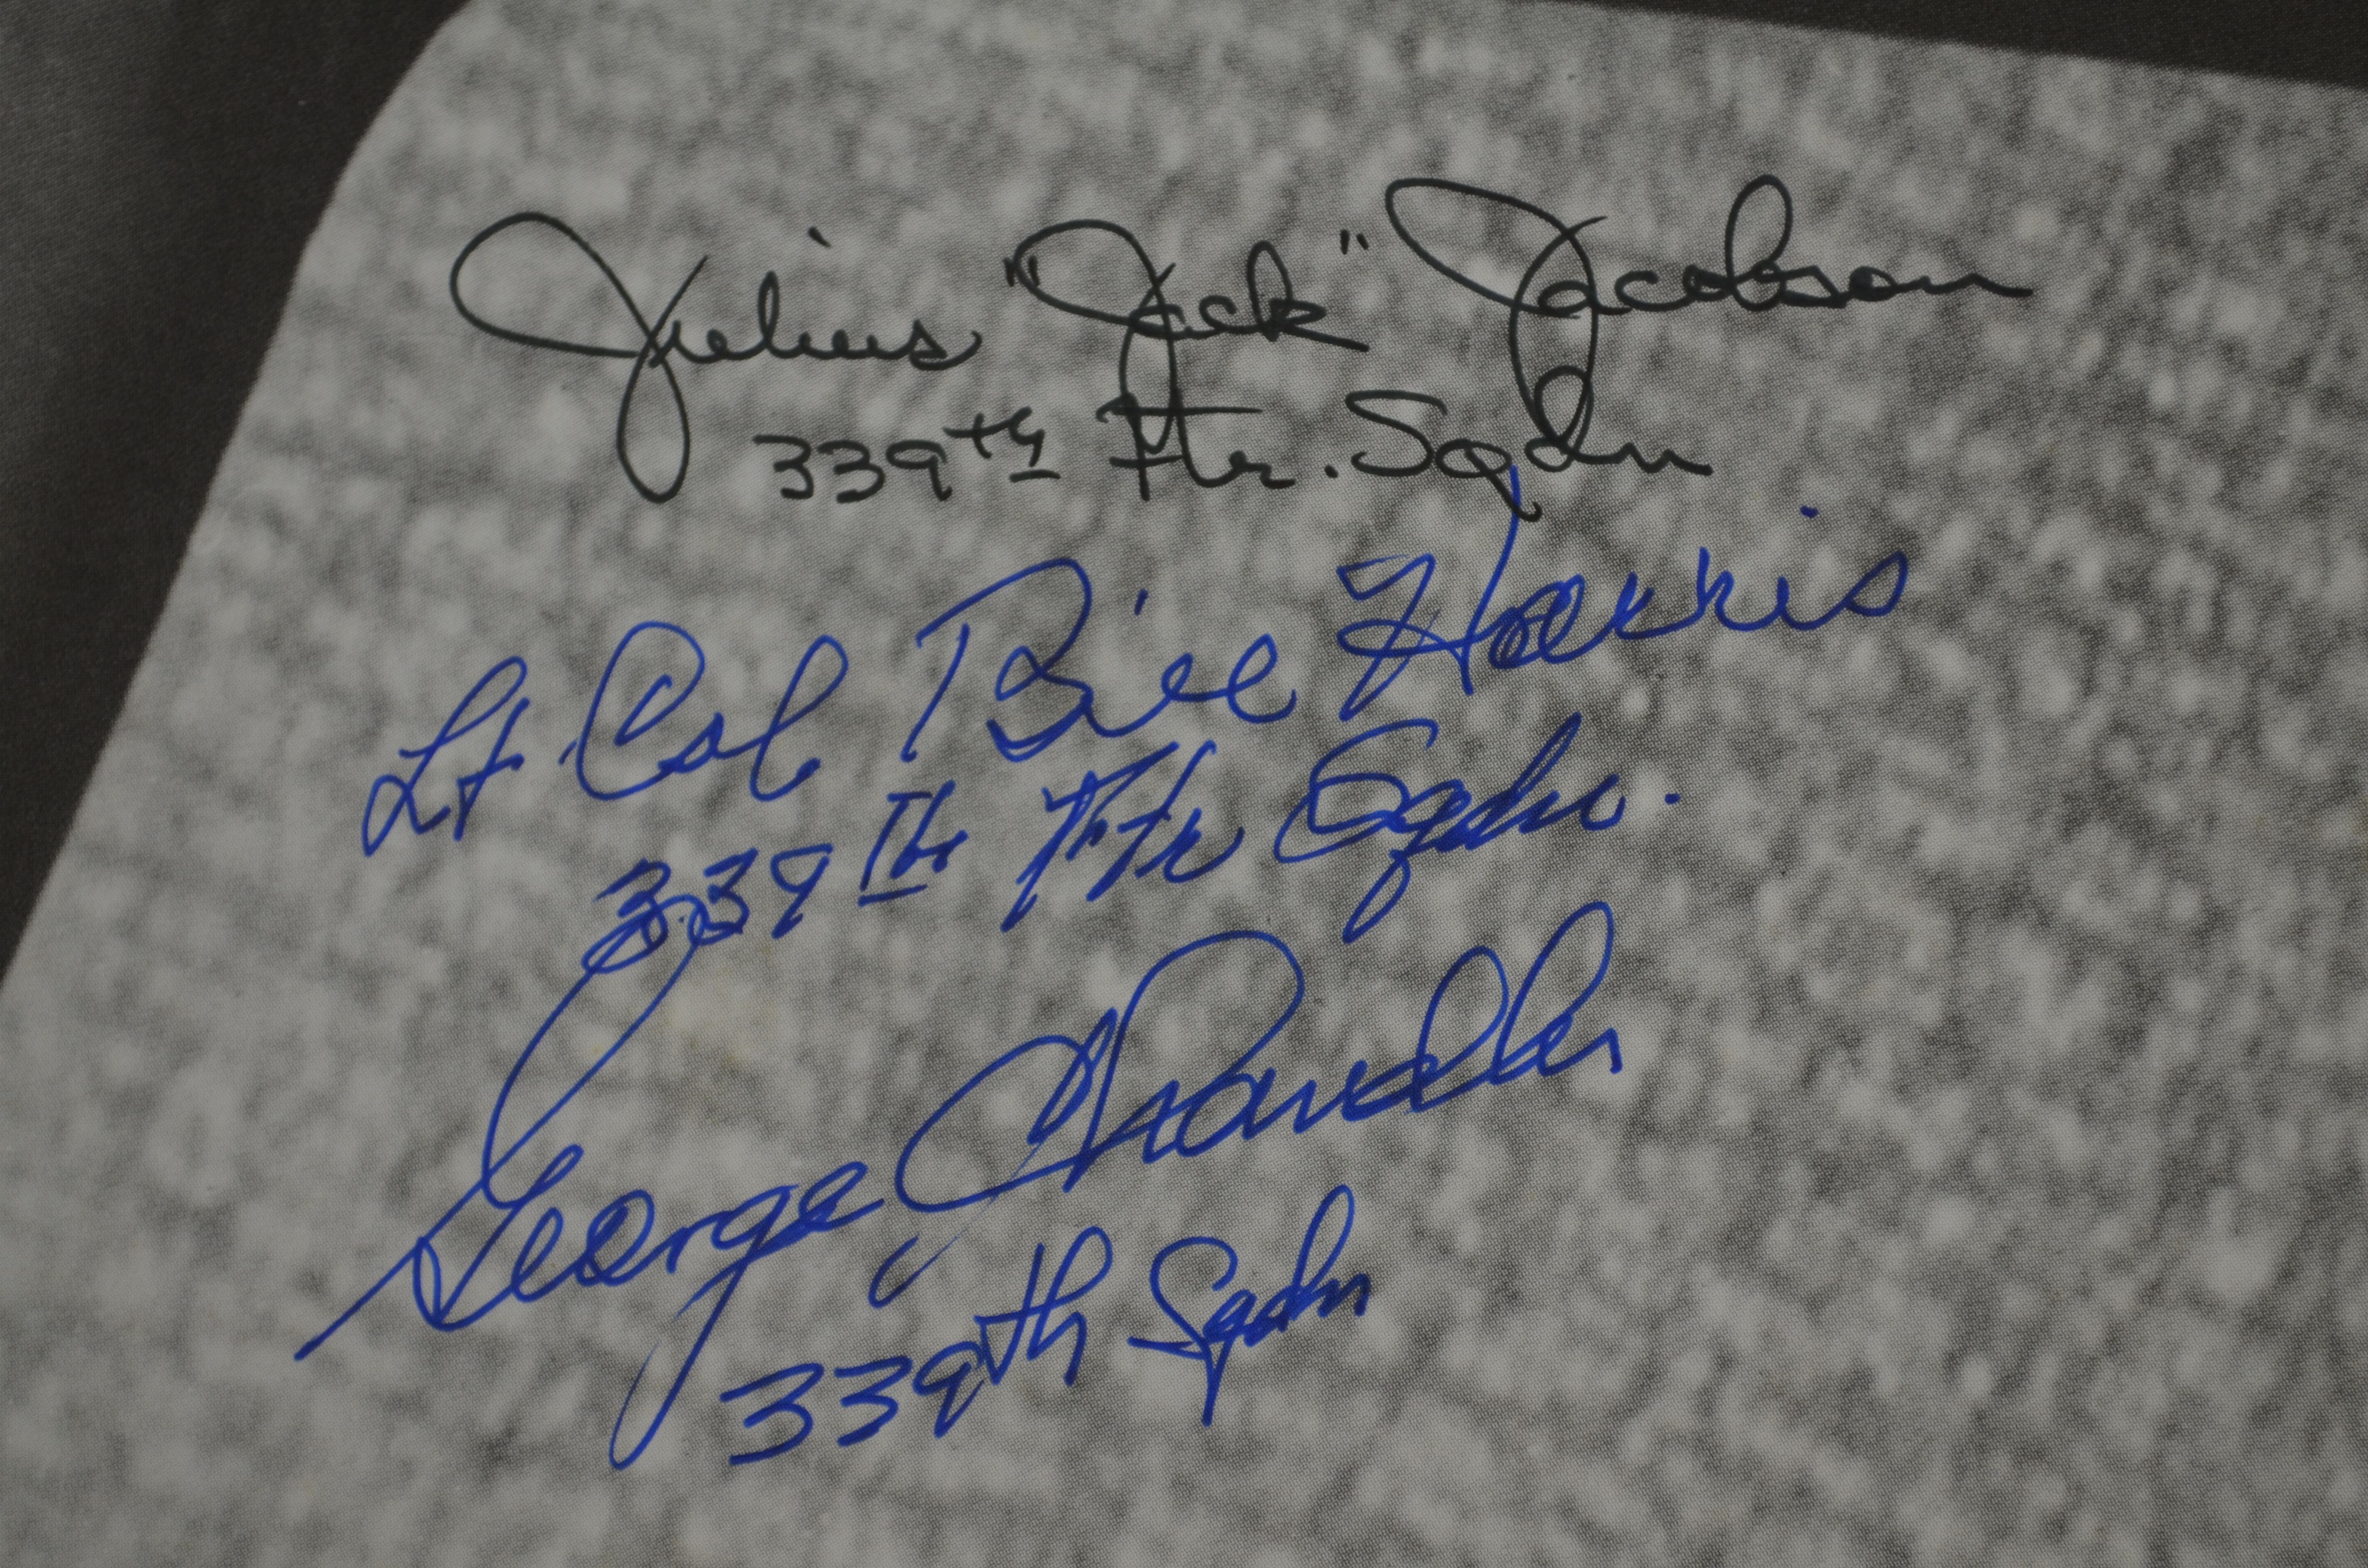 Julius "Jack" Jacobson
339th Ftr. Sqdn
Lt Col Bill Harris
339th Ftr Sqdn.
George Chandler
339th Sqdn